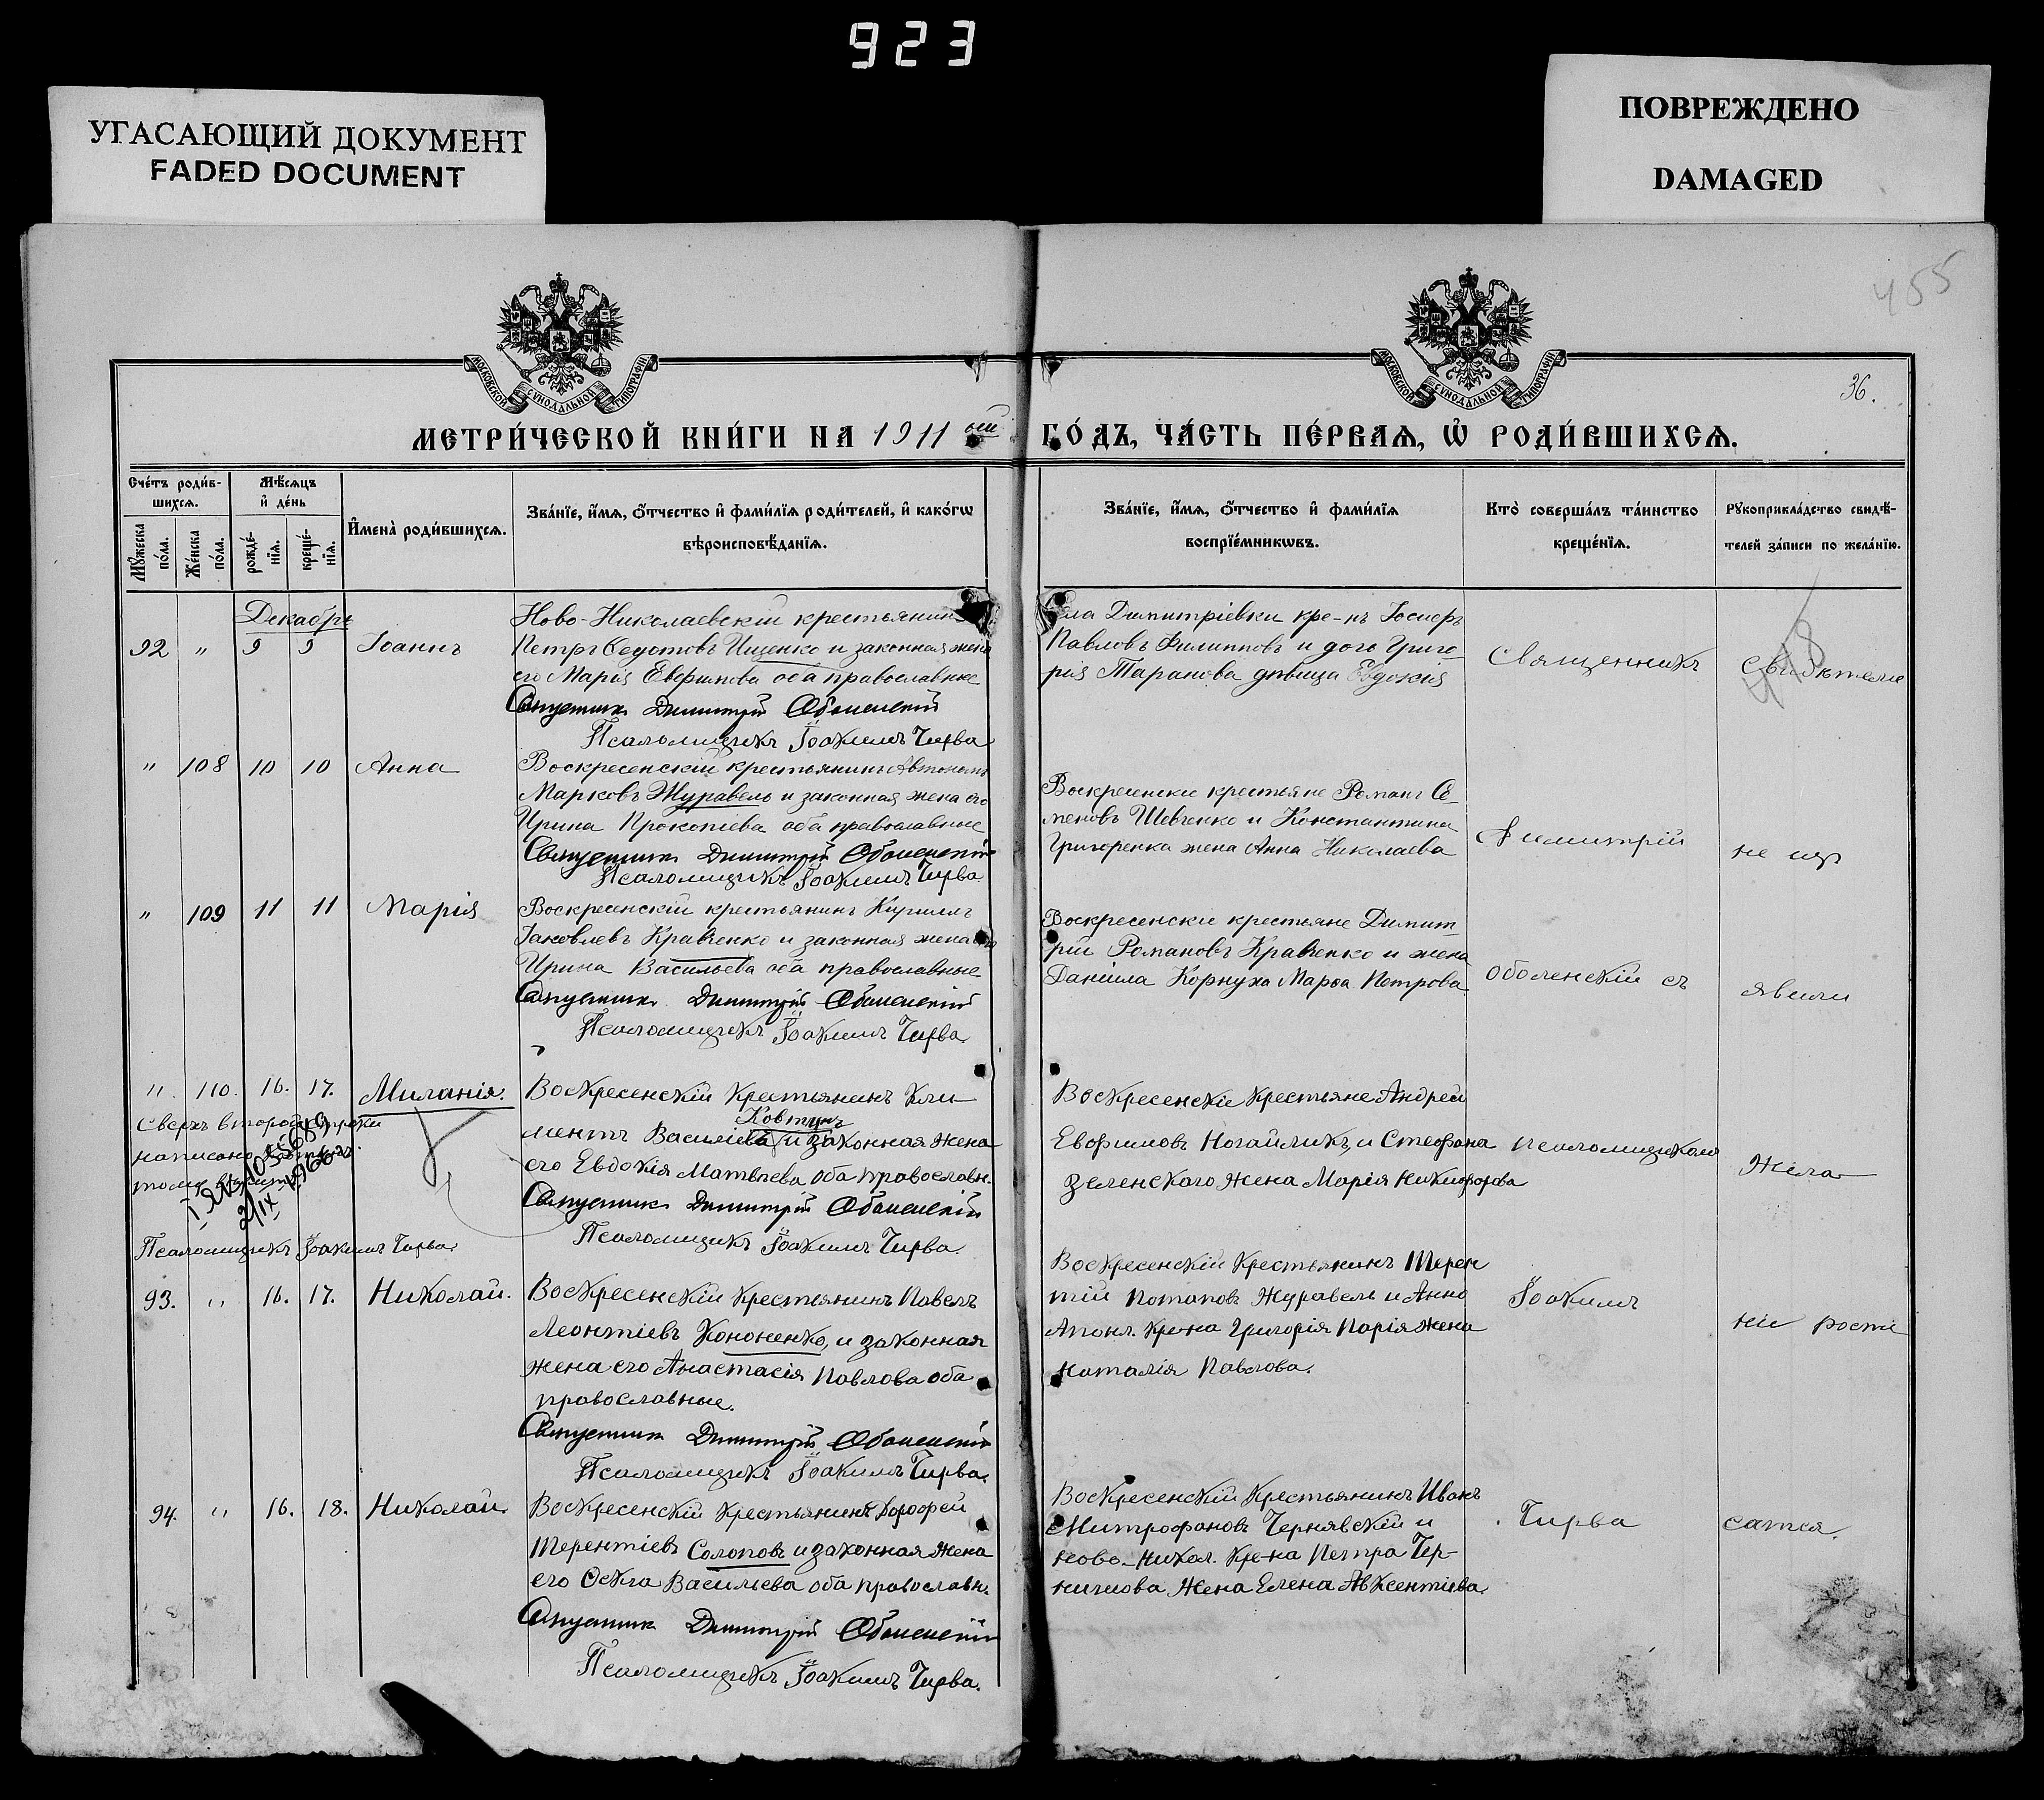 923
УГАСАЮЩИЙ ДОКУМЕНТ
FADED DOCUMENT
ПОВРЕЖДЕНО
DAMAGED
455
МОСКОВСКОЙ СѴНОДАЛЬНОЙ ТИПОГРАФІИ
МОСКОВСКОЙ СѴНОДАЛЬНОЙ ТИПОГРАФІИ
36.
МЕТРИ́ЧЕСКОЙ КНИ́ГИ НА 1911 ый ГО́ДЪ, ЧА́СТЬ ПЕ́РВАѦ, Ѡ҆ РОДИ́ВШИХСѦ.
Сче́тъ роди́в-
шихсѧ.
Мꙋ́жеска по́ла.
Же́нска по́ла.
Мѣ́сѧцъ
и҆ де́нь
рожде́-
нїѧ.
креще́-
нїѧ.
И҆мена̀ роди́вшихсѧ.
Зва́нїе, и҆́мѧ, ѻ҆́тчество и҆ фами́лїѧ роди́телей, и҆ како́гѡ
вѣроисповѣ́данїѧ.
Зва́нїе, и҆́мѧ, ѻ҆́тчество и҆ фами́лїѧ
воспрїе́мникѡвъ.
Кто̀ соверша́лъ та́инство
креще́нїѧ.
Рꙋкоприкла́дство свидѣ́-
телей за́писи по жела́нїю.
Декабрь
92 " 9 9 Іоаннъ
Ново-Николаевскій крестьянинъ
Петръ Ѳедотовъ Ищенко и законная жена
его Марія Евфимова оба православные
Священникъ Димитрій Оболенскій
Псаломщикъ Іоакимъ Чирва
села Димитріевки кре-нъ Іосифъ
Павловъ Филипповъ и дочь Григо-
рія Таранова дѣвица Евдокія
Священникъ
Свидѣтели
" 108 10 10 Анна
Воскресенскій крестьянинъ Автономъ
Марковъ Журавель и законная жена его
Ирина Прокопіева оба православные
Священникъ Димитрій Оболенскій
Псаломщикъ Іоакимъ Чирва
Воскресенскіе крестьяне Романъ Се-
меновъ Шевченко и Константина
Григоренка жена Анна Николаева
Димитрій
не изъ
" 109 11 11 Марія
Воскресенскій крестьянинъ Кириллъ
Іаковлевъ Кравченко и законная жена его
Ирина Васильева оба православные
Священникъ Димитрій Оболенскій
Псаломщикъ Іоакимъ Чирва.
Воскресенскіе крестьяне Димит-
рій Романовъ Кравченко и жена
Даніила Корнуха Марѳа Петрова.
Оболенскій съ
явили
" 110. 16. 17. Миланія.
Воскресенскій крестьянинъ Кли-
Ковтунъ
ментъ Василіевъ и законная жена
его Евдокія Матвѣева оба православн.
Священникъ Димитрій Оболенскій
Псаломщикъ Іоакимъ Чирва.
Сверхъ второй строки
написано
Псаломщикъ Іоакимъ Чирва.
Воскресенскіе крестьяне Андрей
Евфимовъ Ногайликъ, и Стефана
Зеленскаго жена Марія Никифорова
псаломщикомъ
жела-
93. " 16. 17. Николай.
Воскресенскій крестьянинъ Павелъ
Леонтіевъ Кононенко, и законная
жена его Анастасія Павлова оба
православные.
Священникъ Димитрій Оболенскій
Псаломщикъ Іоакимъ Чирва.
Воскресенскій крестьянинъ Терен-
тій Потаповъ Журавель и Анно
Апокл. кре-на Григорія Парія жена
Наталія Павлова.
Іоакимъ
нія
94. " 16. 18. Николай.
Воскресенскій крестьянинъ Дорофей
Терентіевъ Солоповъ и законная жена
его Ѳекла Василіева оба православн.
Священникъ Димитрій Оболенскій
Псаломщикъ Іоакимъ Чирва.
Воскресенскій крестьянинъ Иванъ
Митрофановъ Чернявскій и
Ново-Никол. кре-на Петра Чер-
жена Елена Авксентіева.
Чирва
саться.